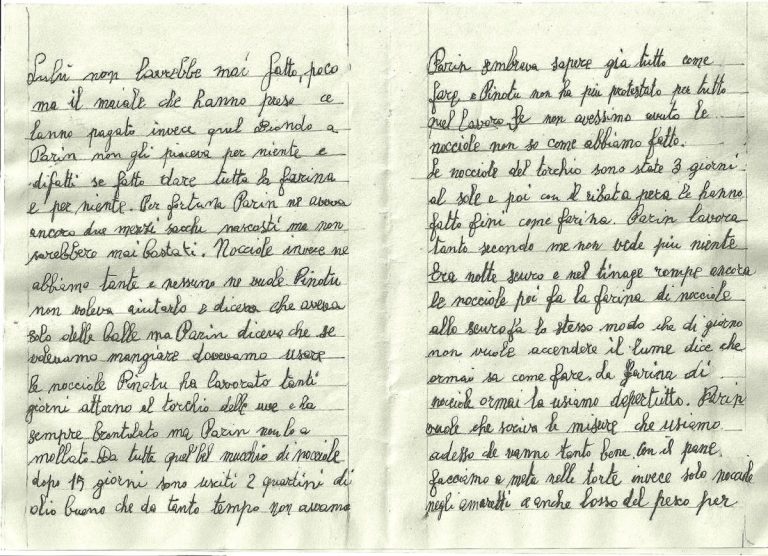 Lulù non lavrebbe mai fatto, poco
ma il maiale che hanno preso ce
lanno pagato invece quel biondo a
Parin non gli piaceva per niente e
difatti se fatto dare tutta la farina
e per niente. Per fortuna Parin ne aveva
ancora due mezzi sacchi nascosti ma non
sarebbero mai bastati. Nocciole invece ne
abbiamo tante e nessuno ne vuole Pinotu
non voleva aiutarlo e diceva che aveva
solo delle balle ma Parin diceva che se
volevamo mangiare dovevamo usare
le nocciole Pinotu ha lavorato tanti
giorni attorno al torchio delle uve e ha
sempre brontolato ma Parin non lo a
mollato. Da tutte quel bel mucchio di nocciole
dopo 15 giorni sono usciti 2 quartini di
olio buono che da tanto tempo non avevamo
Parin sembrava sapere già tutto come
fare e Pinotu non ha più protestato per tutto
quel lavoro. Se non avessimo avuto le
nocciole non so come abbiamo fatto.
Le nocciole del torchio sono state 3 giorni
al sole e poi con il ribata pera le hanno
fatto fini come farina. Parin lavora
tanto secondo me non vede più niente
Era notte scuro e nel tinage rompe ancora
le nocciole poi fa la farina di nocciole
allo scuro fa lo stesso modo che di giorno
non vuole accendere il lume dice che
ormai sa come fare. La farina di
nocciole ormai la usiamo dapertutto. Parin
vuole che scriva le misure che usiamo
adesso che vanno tanto bene. Con il pane
facciamo a metà nelle torte invece solo nocciole
negli amaretti a anche losso del pesco per